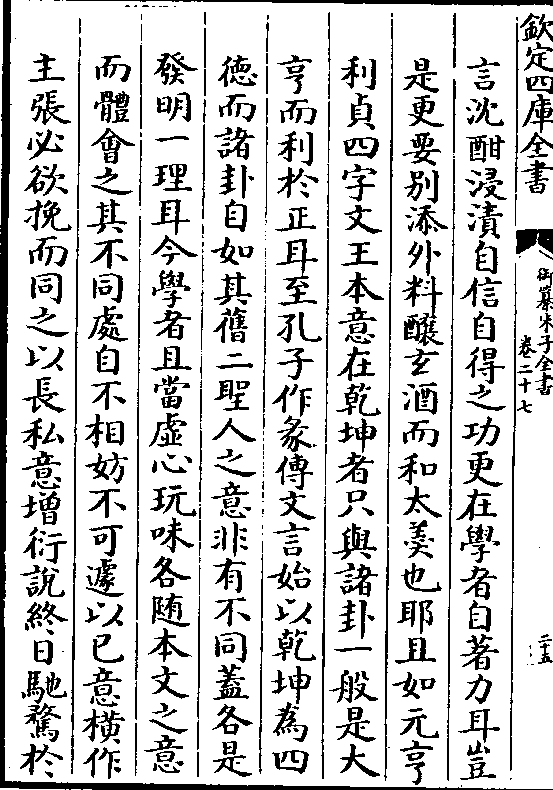 欽定四庫全書
御纂朱子全書
卷二十七
二十五
言沈酣浸漬自信自得之功更在學者自著力耳豈
是更要别添外料釀玄酒而和太羮也耶且如元亨
利貞四字文王本意在乾坤者只與諸卦一般是大
亨而利於正耳至孔子作彖傳文言始以乾坤為四
徳而諸卦自如其舊二聖人之意非有不同蓋各是
發明一理耳今學者且當虚心玩味各随本文之意
而體會之其不同處自不相妨不可遽以已意横作
主張必欲挽而同之以長私意增衍説終日馳騖於